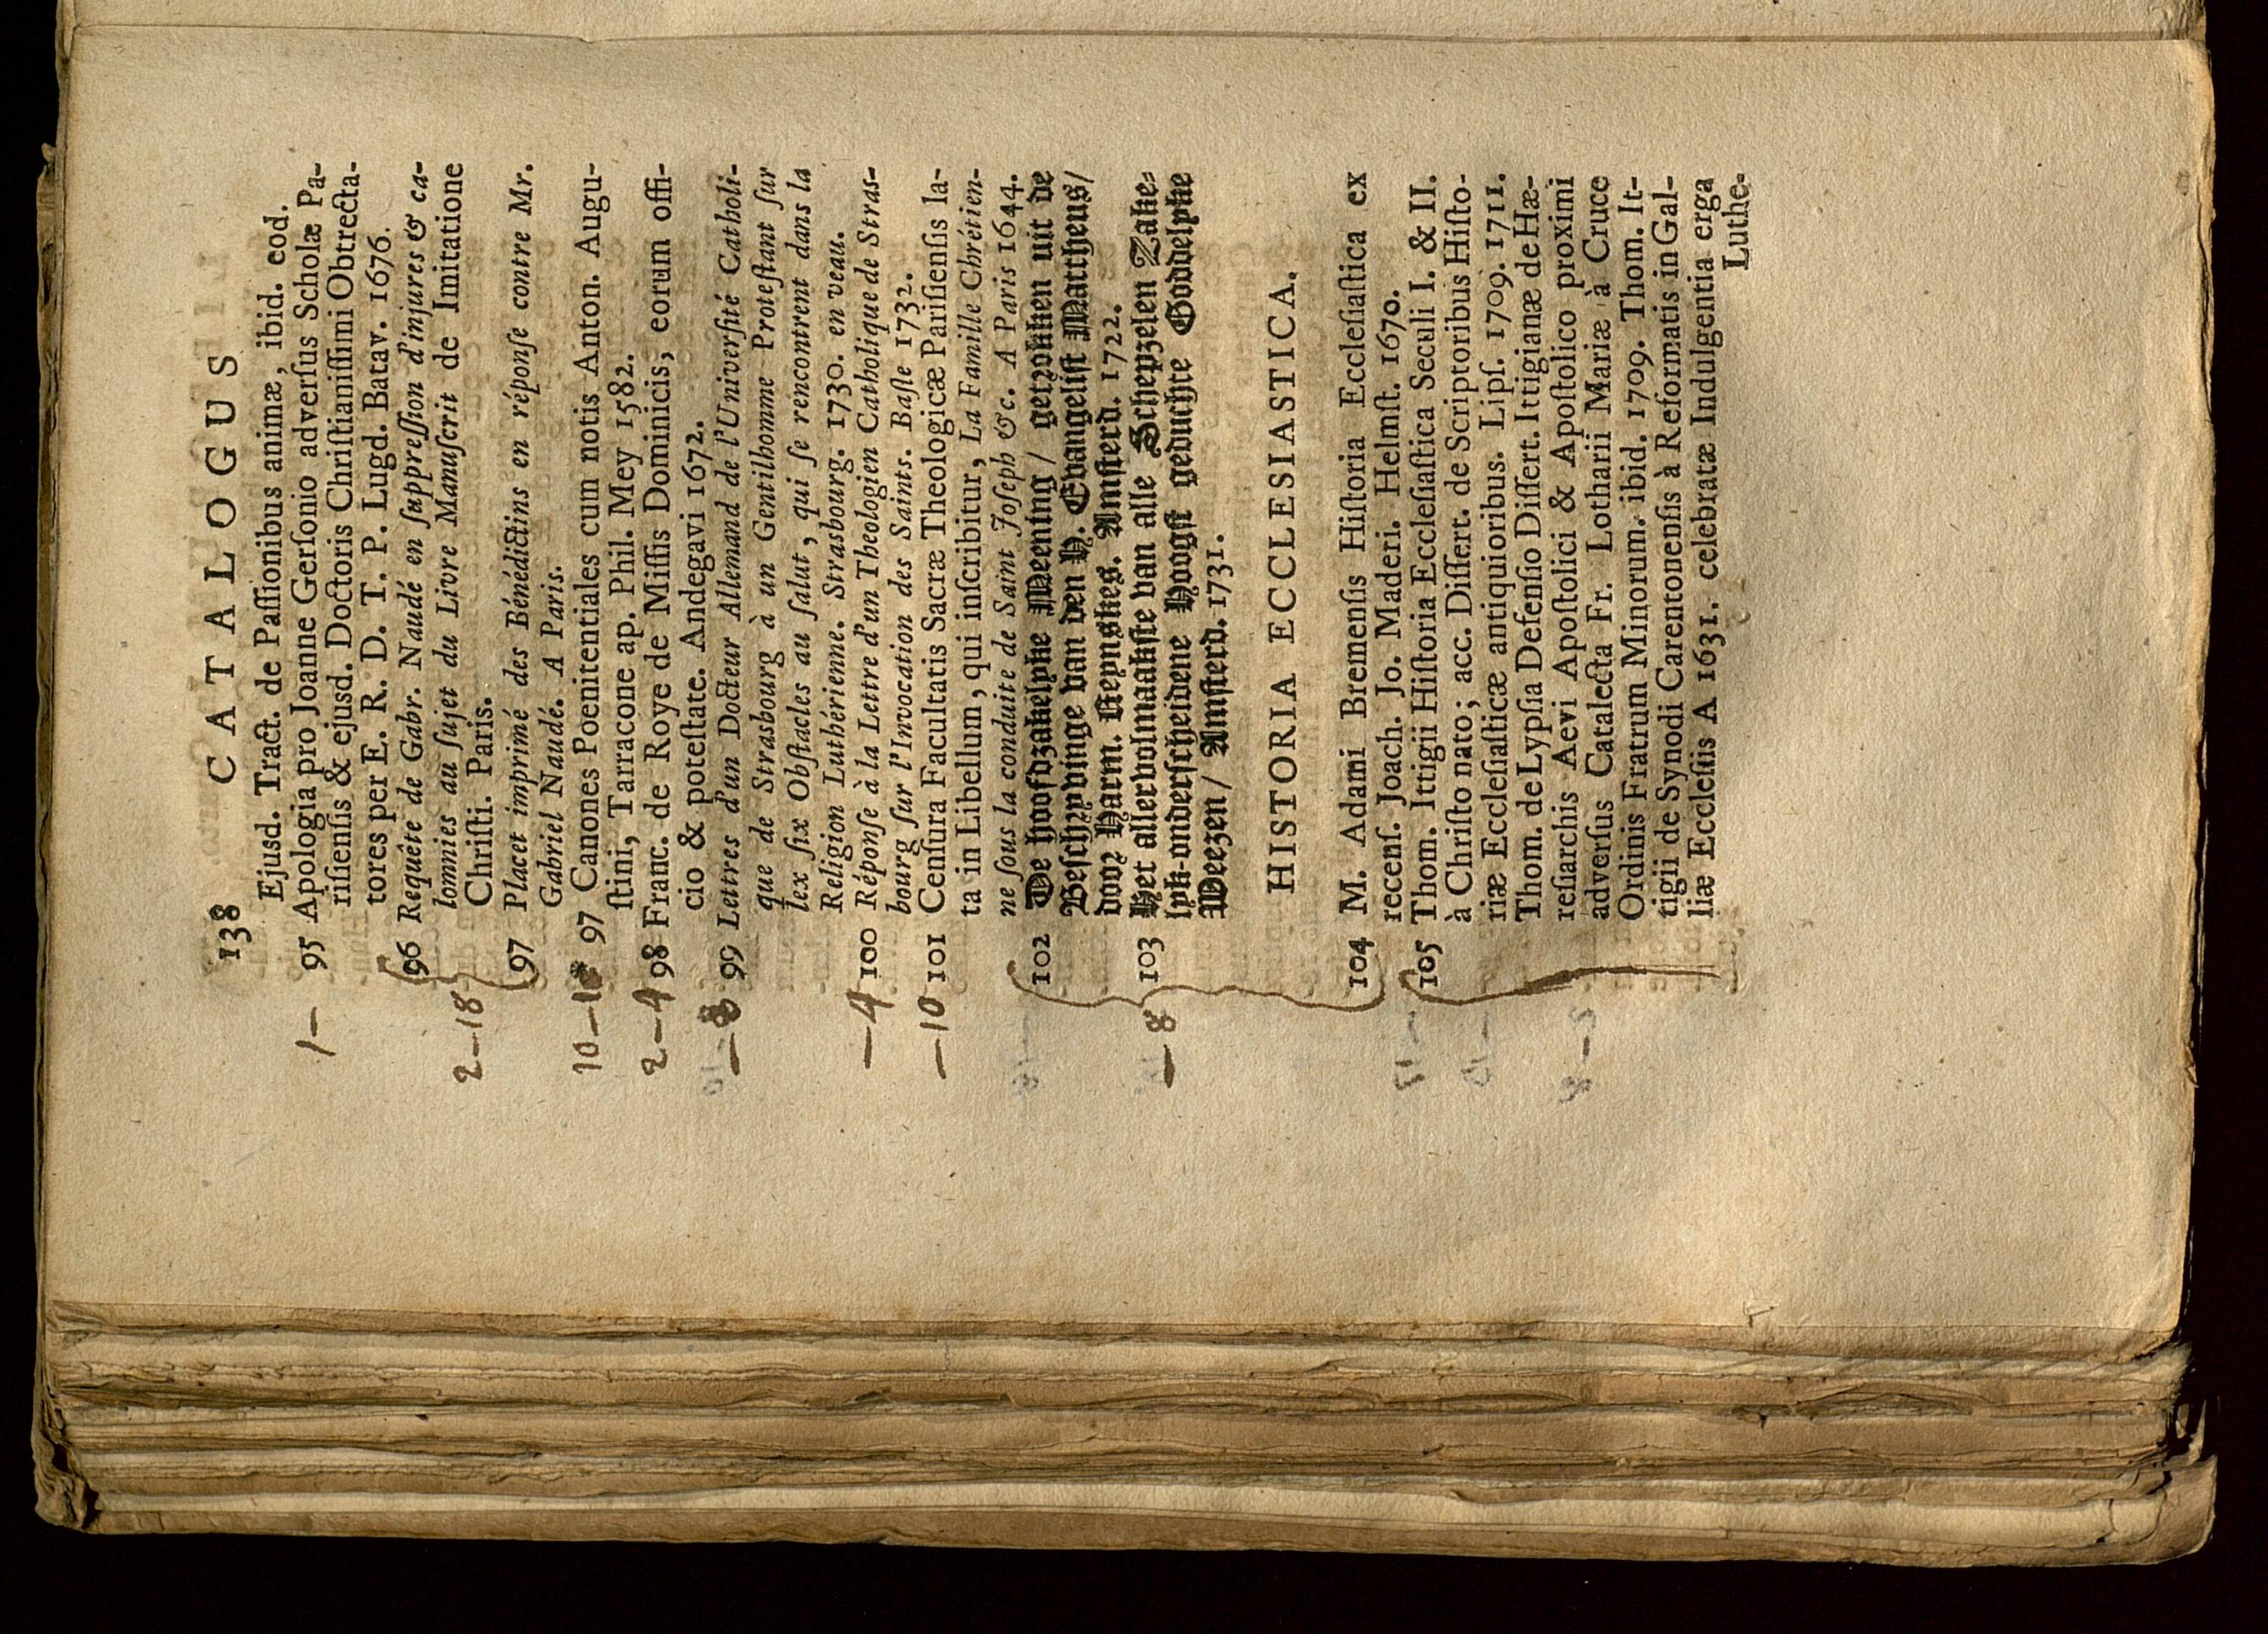 138 CATALOGUS
Ejusd. Tract. de Paſſionibus animæ, ibid. eod.
1— 95 Apologia pro Joanne Gerſonio adverſus Scholæ Pa-
riſienſis & ejusd. Doctoris Chriſtianiſſimi Obtrecta-
tores per E. R. D. T. P. Lugd. Batav. 1676.
96 Requête de Gabr. Naudé en ſuppreſſion d'injures & ca-
lomnies au ſujet du Livre Manuſcrit de Imitatione
2—18 Chriſti. Paris.
97 Placet imprimé des Bénédictins en réponſe contre Mr.
Gabriel Naudé. A Paris.
10—1 97 Canones Poenitentiales cum notis Anton. Augu-
ſtini, Tarracone ap. Phil. Mey 1582.
2—4 98 Franc. de Roye de Miſſis Dominicis, eorum offi-
cio & poteſtate. Andegavi 1672.
—8 99 Lettres d'un Docteur Allemand de l'Univerſité Catholi-
que de Strasbourg à un Gentilhomme Proteſtant ſur
lex ſix Obſtacles au ſalut, qui ſe rencontrent dans la
Religion Luthérienne. Strasbourg. 1730. en veau.
—4 100 Réponſe à la Lettre d'un Theologien Catholique de Stras-
bourg ſur l'Invocation des Saints. Baſle 1732.
—10 101 Cenſura Facultatis Sacræ Theologicæ Pariſienſis la-
ta in Libellum, qui inſcribitur, La Famille Chrétien-
ne ſous la conduite de Saint Joſeph &c. A Paris 1644.
102 De hoofdzakelyke Meening / getrokken uit de
Beſchryvinge van den H. Evangeliſt Mattheus/
door Harm. Reynskes. Amſterd. 1722.
—8 103 Het allervolmaakſte van alle Schepzelen Zake-
lyk-onderſcheidene Hoogſt geduchte Goddelyke
Weezen / Amſterd. 1731.
HISTORIA ECCLESIASTICA.
104 M. Adami Bremenſis Hiſtoria Eccleſiaſtica ex
recenſ. Joach. Jo. Maderi. Helmſt. 1670.
105 Thom. Ittigii Hiſtoria Eccleſiaſtica Seculi I. & II.
à Chriſto nato; acc. Diſſert. de Scriptoribus Hiſto-
riæ Eccleſiaſticæ antiquioribus. Lipſ. 1709. 1711.
Thom. de Lypſia Defenſio Diſſert. Ittigianæ de Hæ-
reſiarchis Aevi Apoſtolici & Apoſtolico proximi
adverſus Catalecta Fr. Lotharii Mariæ à Cruce
Ordinis Fratrum Minorum. ibid. 1709. Thom. It-
tigii de Synodi Carentonenſis à Reformatis in Gal-
liæ Eccleſiis A 1631. celebratæ Indulgentia erga
Luthe-